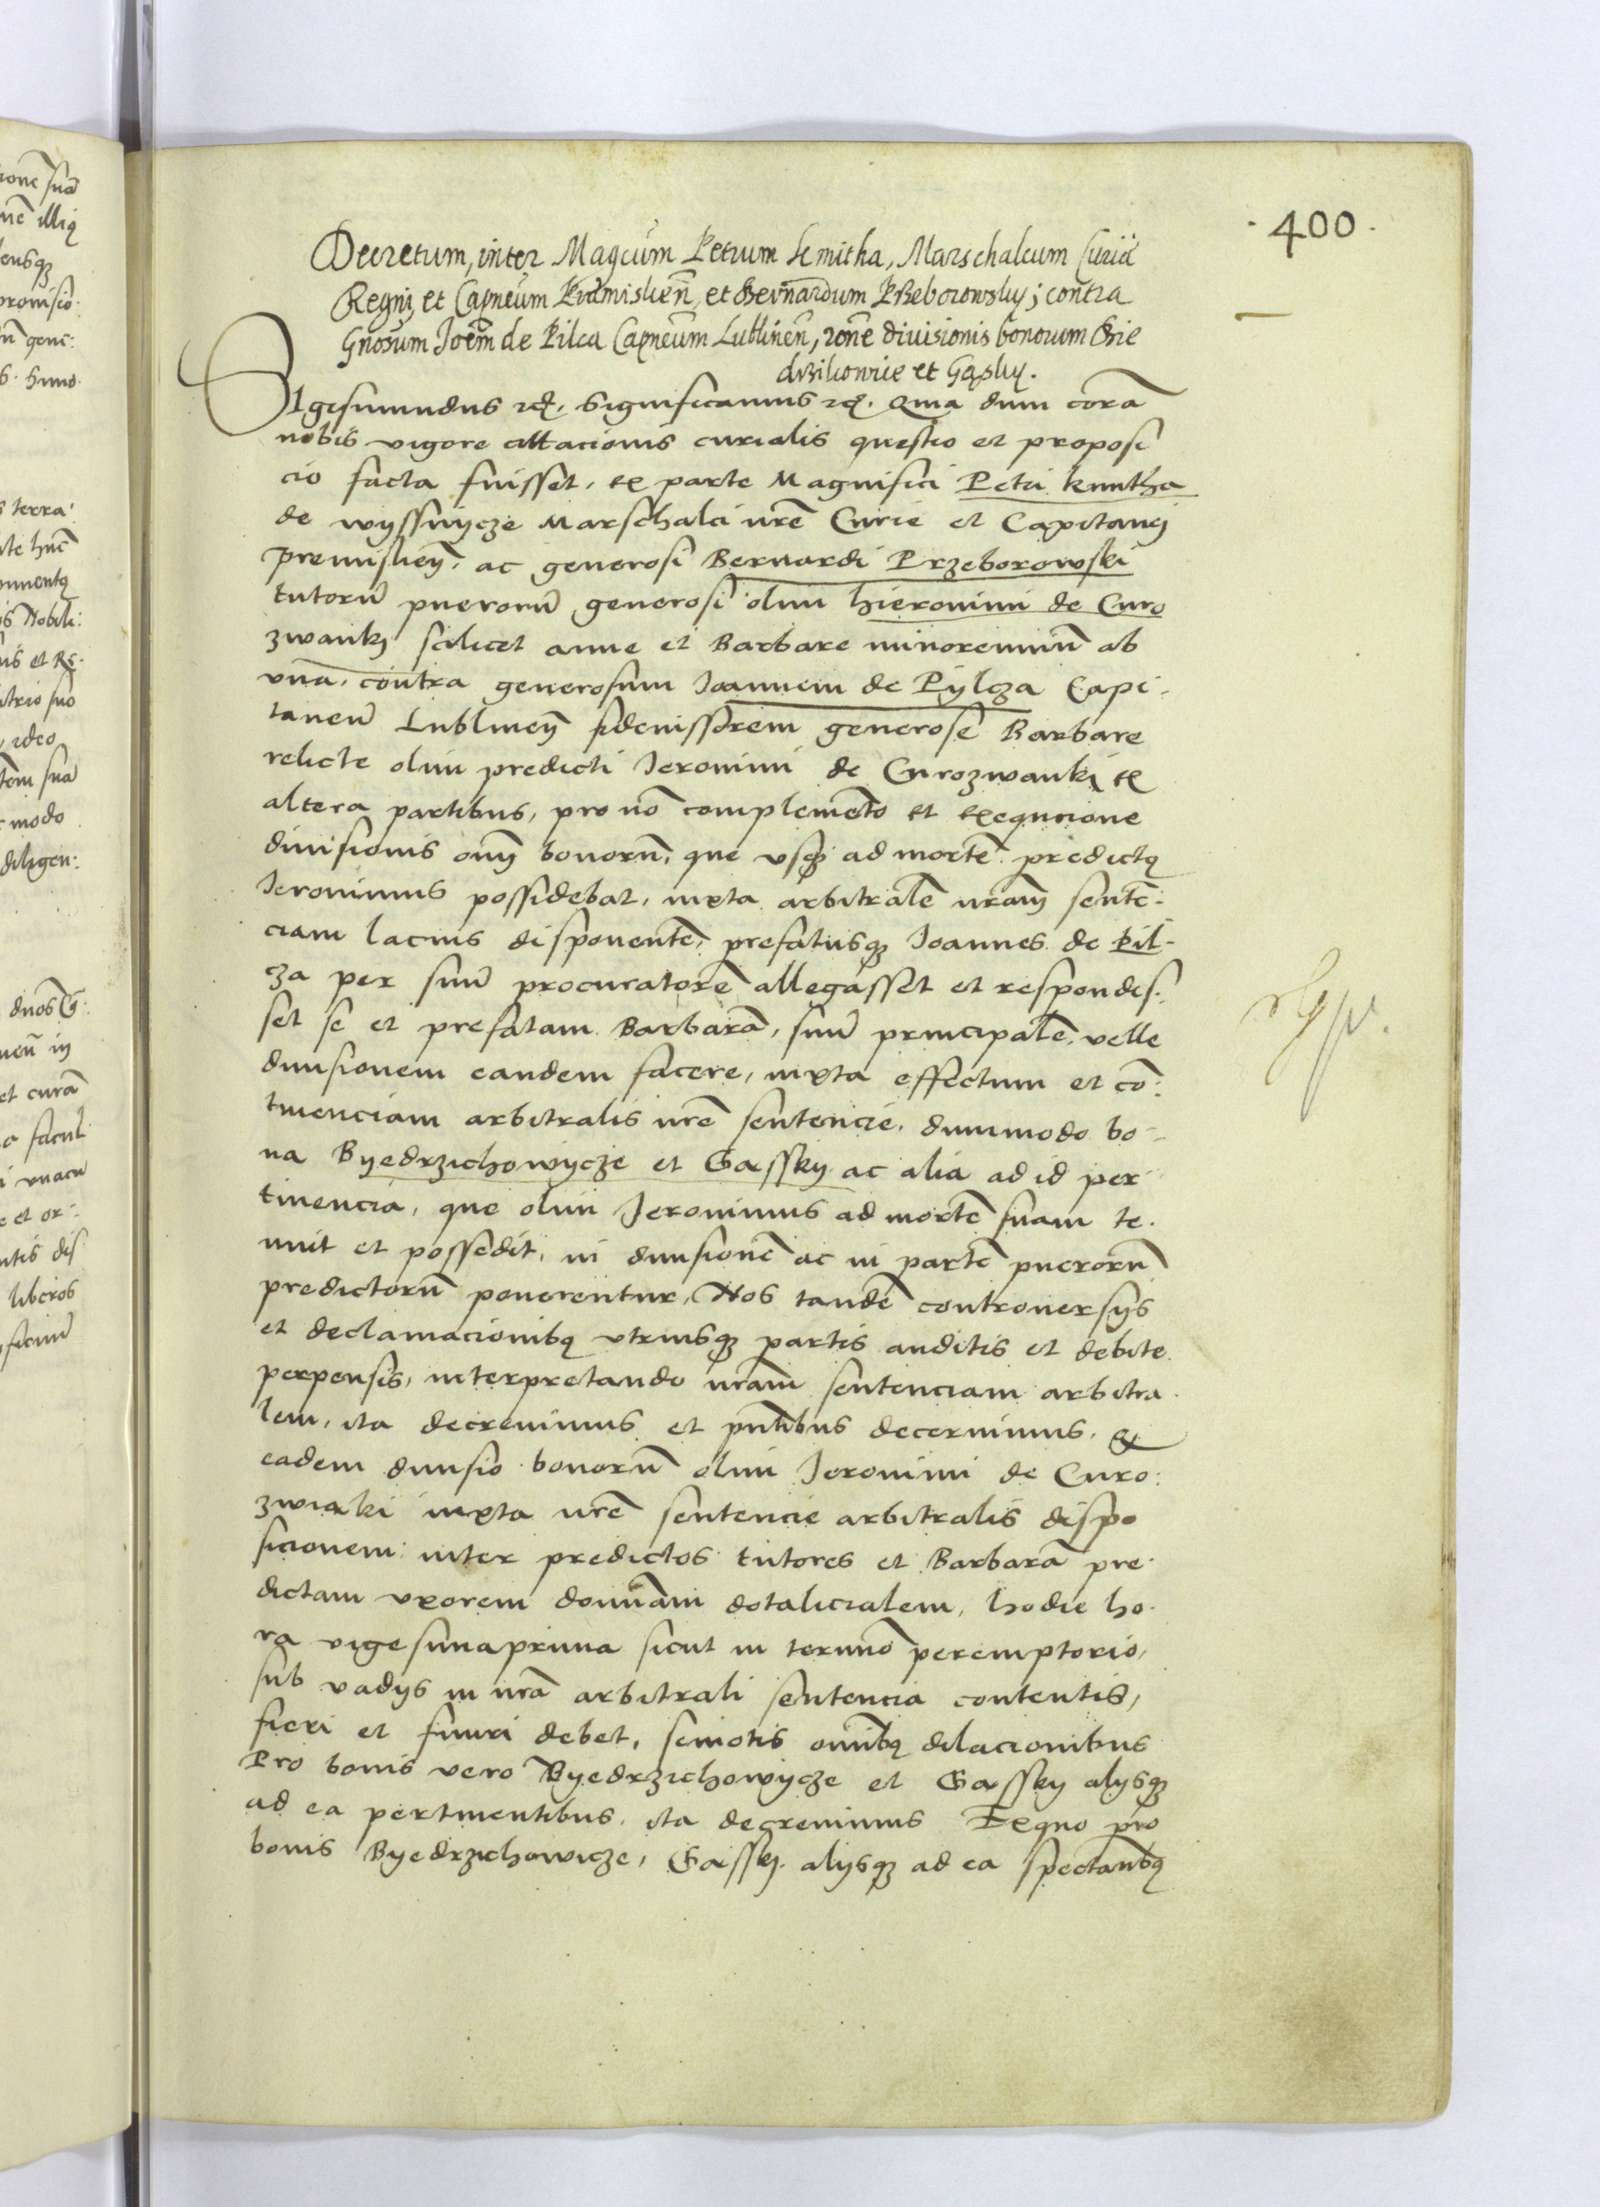 400
Decretum, inter Magcum Petrum kmitha, Marschalcum Curiae
Regni, et Capneum Premislien, et Bernardum PRzeborowsky; contra
Gnosum Joem de Pilca Capneum Lublinen, rone divisionis bonorum Bie
drzikowice et Gąsky.
Sigismundus rc. Significamus rc. Quia dum corã
nobis vigore cittacionis curialis questio et proposi
cio facta fuisset, ex parte Magnifici Petri kmitha
de wyssnycze Marschalci nrẽ Curie et Capitanei
premislien, ac generosi Bernardi Przeborowski
tutorũ puerorũ generosi olim hieronimi de Curo
zwanki scilicet anne et Barbare minorennium ab
vna, contra generosum Joannem de Pylcza Capi-
taneũ Lublineñ fideiussorem generose Barbare
relicte olim predicti Jeronimi de Curozwanki ex
altera partibus, pro nõ complemẽto et exequcione
divisionis oim bonorũ, que vsq ad mortẽ predictq
Jeronimus possidebat, iuxta arbitralẽ nram sentẽ:
ciam lacius disponentẽ, prefatusq Joannes de Pil-
cza per suũ procuratorẽ allegasset et respondis:
set se et prefatam Barbarã, suũ principalẽ, velle
diuisionem eandem facere, iuxta effectum et cõ:
tinenciam arbitralis nrẽ sentencie, dummodo bo-
na Byedrzichowycze et Gassky ac alia ad id per
tinencia, que olim Jeronimus ad mortẽ suam te.
nuit et possedit, in diuisionẽ ac in partẽ puerorũ
predictorũ ponerentur, Nos tandẽ controuersijs
et declamacionibq vtriusq partis auditis et debite
perpensis, interpretando nram sentenciam arbitra
lem, ita decreuimus et pntibus decernimus, q
eadem diuisio bonorũ olim Jeronimi de Curo:
zwaki iuxta nrẽ sentencie arbitralis dispo
sicionem inter predictos tutores et Barbarã pre
dictam vxorem donnam dotalicialem, hodie ho.
ra vigesimaprima sicut in termino peremptorio,
sub vadijs in nrã arbitrali sentencia contentis,
fieri et finiri debet, semotis omibq dilacionibus
Pro bonis vero Byedrzichowycze et Gassky alijsq
ad ea pertinentibus, ita decreuimus Ex quo pro
bonis Byedrzichowicze, Gassky alijsq ad ea spectantibq